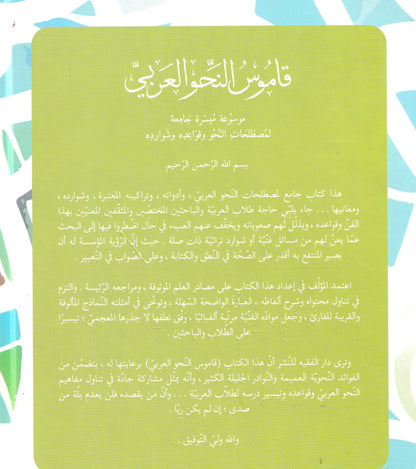 قاموس النحو العربيّ
موسوعة ميسّرة جامعة
لمصطلحات النّحو وقواعده وشوارده
بسم الله الرّحمن الرّحيم
هذا كتاب جامع لمصطلحات النّحو العربيّ، وأدواته، وتراكيبه المعتبرة، وشوارده،
ومعانيها . . . جاء يلبّي حاجة طلاب العربيّة والباحثين المختصّين والمثقّفين المعنيّين بهذا
الفنّ وقواعده، ويذلّل لهم صعوباته ويخفّف عنهم العبء، في حال اضطرّوا فيها إلى البحث
عمّا يعنّ لهم من مسائل فنّيّة أو شوارد تراثيّة ذات صلة . حيث إنّ الرّؤية المؤسسة له أن
يصير المنتفع به أقدر على الصّحّة في النّطق والكتابة ، وعلى الصّواب في التّعبير .
اعتمد المؤلّف في إعداد هذا الكتاب على مصادر العلم الموثوقة ، ومراجعه الرّئيسة . والتزم
في تناول محتواه وشرح ألفاظه ، العبارة الواضحة السّهلة ، وتوخّى في أمثلته النّماذج المألوفة
والقريبة للقارئ ، وجعل موادّه الفنّيّة مرتّبة ألفبائيًّا ، وفق نطقها لا جذرها المعجميّ ؛ تيسيرًا
على الطّلاب والباحثين .
وترى دار الفقيه للنّشر أنّ هذا الكتاب (قاموس النّحو العربيّ) برعايتها له ، يتضمّن من
الفوائد النّحويّة العميمة والنّوادر الجليلة الكثير ، وأنّه يمثّل مشاركة جادّة في تناول مفاهيم
النّحو العربيّ وقواعده وتيسير درسه لطلاب العربيّة . . . وأنّ من يقصده فلن يعدم بلّة من
صدى ؛ إن لم يكن ريًّا .
والله وليّ التّوفيق .